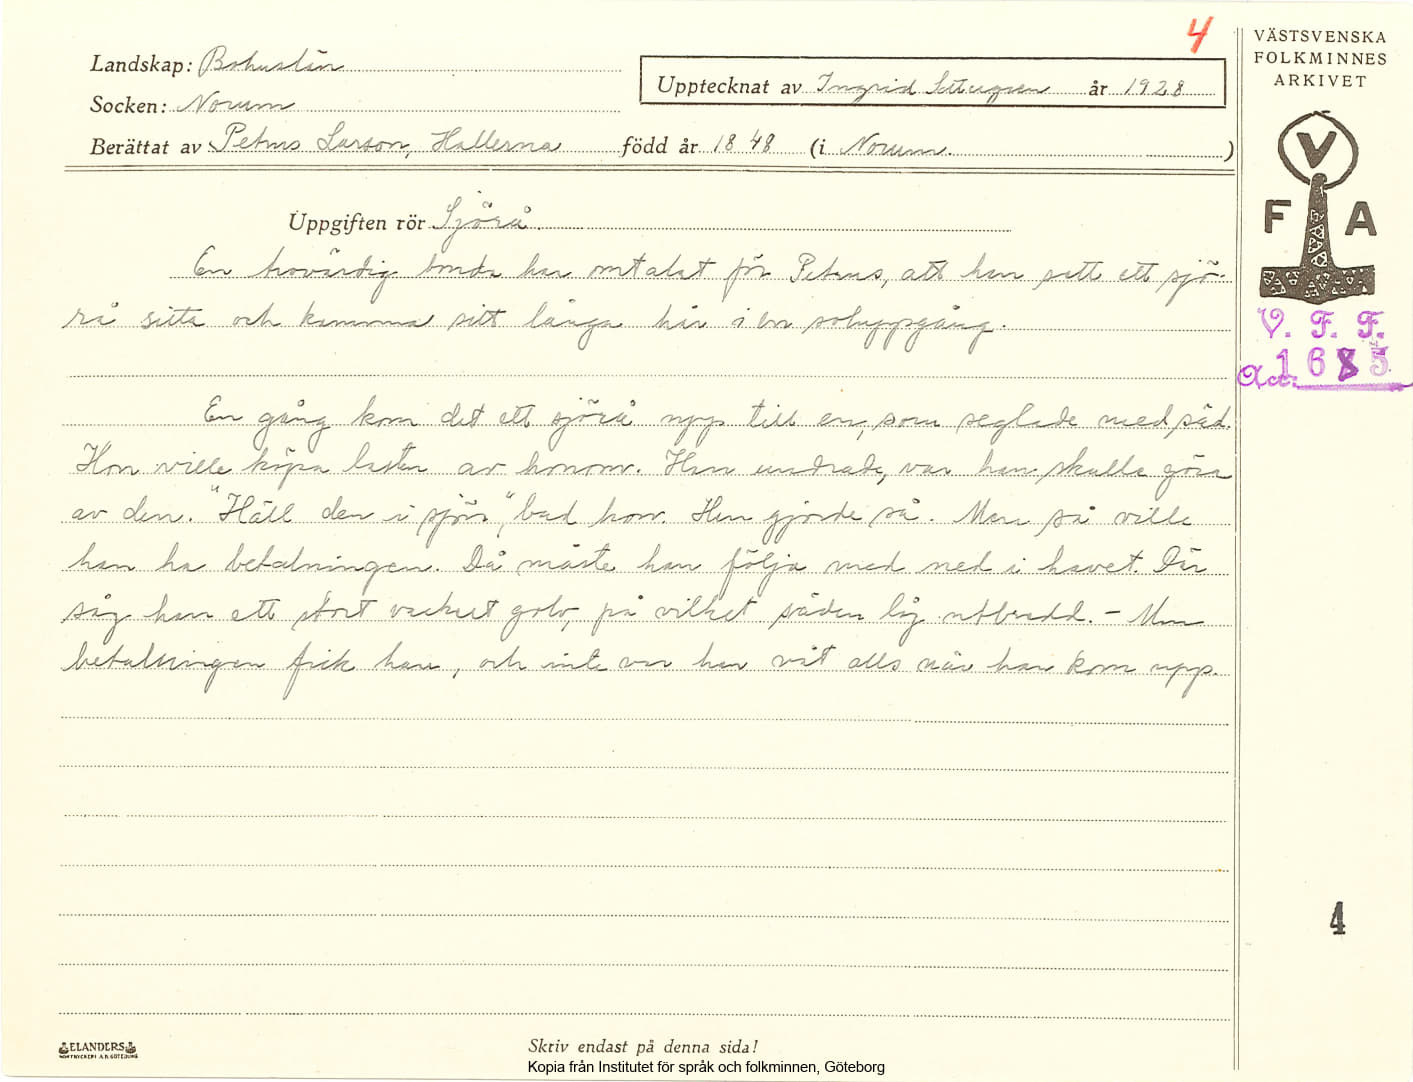 4
VÄSTSVENSKA
FOLKMINNES
ARKIVET
Landskap: Bohuslän
Upptecknat av Ingrid år 1928
Socken: Norum
Berättat av Petrus Larson, Hallerna född år 1848 (i Norum.)
V
F A
Uppgiften rör Sjörå.
En trovärdig bonde har omtalat för Petrus, att han sett ett sjö-
rå sitta och kamma sitt långa hår i en soluppgång.
V. F. F.
Acc. 1685
En gång kom det ett sjörå upp till en, som seglade med säd.
Hon ville köpa lasten av honom. Han undrade, var han skulle göra
av den. "Häll den i sjön", bad hon. Han gjorde så. Men så ville
han ha betalningen. Då måste han följa med ned i havet. Där
såg han ett stort vackert golv, på vilket säden låg utbredd. – Men
betalningen fick han, och inte var han våt alls när han kom upp.
4
ELANDERS
BOKTRYCKERI A.B. GÖTEBORG
Skriv endast på denna sida!
Kopia från Institutet för språk och folkminnen, Göteborg